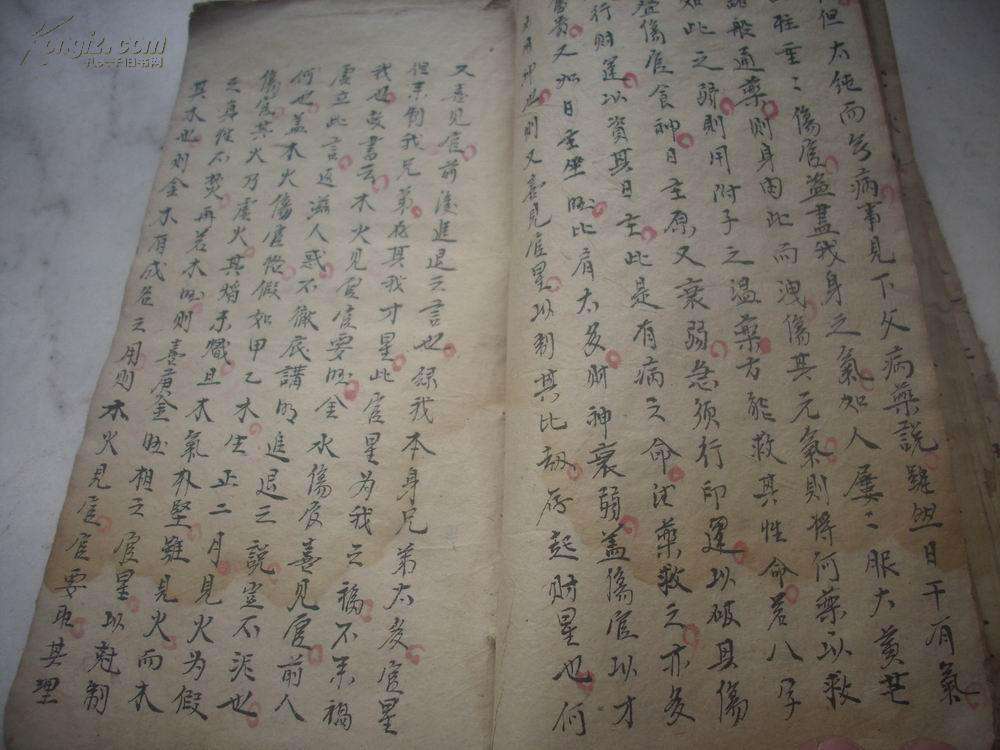 但太純而多病蓋見下文病藥說雖然日干有氣
柱重〻傷官盜盡我身之氣如人屢〻服大黃芒
諸般通藥則身由此而洩傷其元氣則將何藥以救
如此之弱則用附子之溫藥方能救其性命若八字
登傷官食神日主原又衰弱急須行印運以破其傷
行財運以資其日主此是有病之命得藥救之亦多
富貴又如日主坐旺比肩太多財神衰弱蓋傷官以才
則又喜見官星以制其比劫存起財星也何
又喜見官前後進退之言也緣我本身兄弟太多官星
但来制我兄弟在其我才星此官星為我之福不来禍
我也故書云木火見官官要旺金水傷官喜見官前人
虛立此言返滋人惑不徹底講明進退之說豈不泥也
何也蓋木火傷官恰假如甲乙木生正二月見火為假
傷官其火乃虛火其焰未熾且木氣朴堅雖見火而木
之真性不焚再若木旺則喜庚金旺相之官星以尅制
其木也則金木有成名之用則木火見官官要取其理
孔夫子旧书网